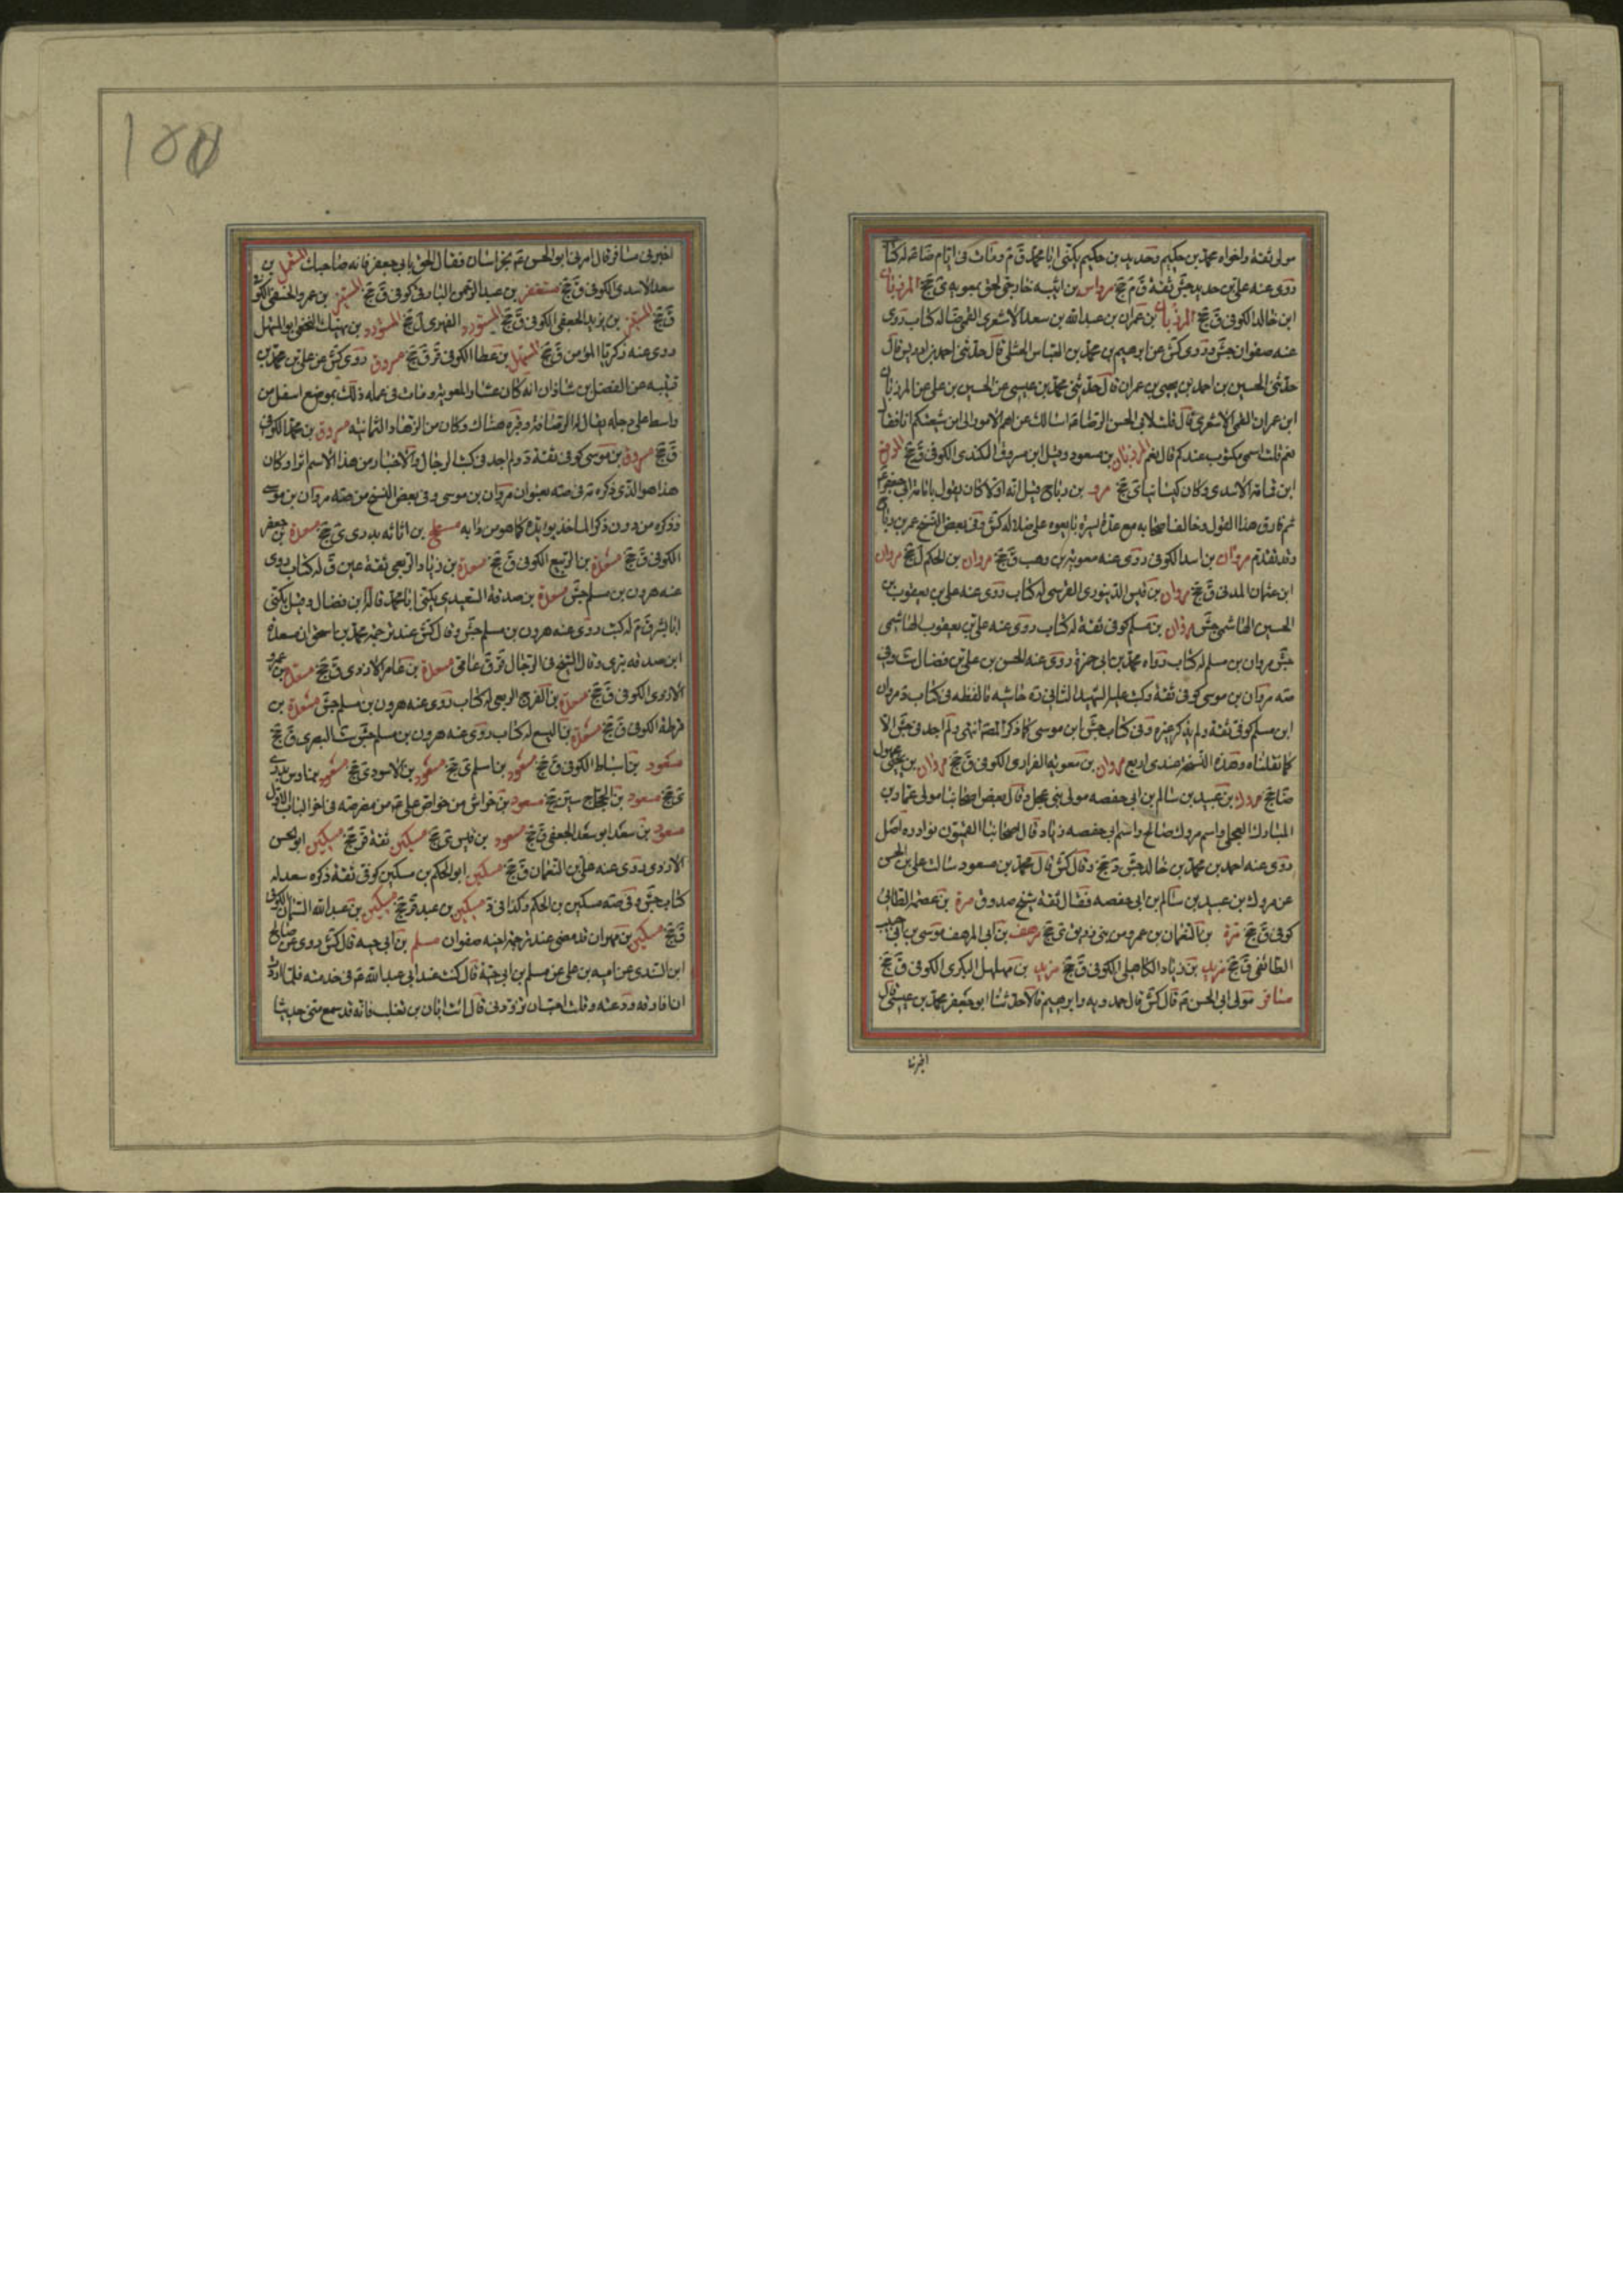 مولى ثقة واخواه محمد بن حكيم وحديد بن حكيم يكنى ابا محمد ق م ومات في ايام ضا ع له كتاب
روى عنه علي بن حديد جش ثقة ق م جخ مرداس بن ابيه خارجي لحق بمعويه ي جخ المرزبان
ابن خالد الكوفي ق جخ المرزبان بن عمران بن عبد الله بن سعد الاشعري القمي ضا له كتاب روى
عنه صفوان جش وروى كش عن ابرهيم بن محمد بن العباس الختلي قال حدثني احمد بن ادريس قال
حدثني الحسين بن احمد بن يحيى بن عمران قال حدثني محمد بن عيسى عن الحسين بن علي عن المرزبان
ابن عمران القمي الاشعري قال قلت لابي الحسن الرضا ع اسالك عن اهم الامور الي امن شيعتكم انا فقال
نعم قلت اسمي مكتوب عندكم قال نعم المرزبان بن مسعود وقيل ابن مسروق الكندي الكوفي ق جخ المرقع
ابن قمامة الاسدي وكان كيسانيا ي جخ مرو بن رباح قيل انه اولا كان يقول بامامة ابي جعفر ع
ثم فارق هذا القول وخالف اصحابه مع عدة يسيرة تابعوه على ضلالة كش وفي بعض النسخ عمر بن رباح
وقد تقدم مروان بن اسد الكوفي روى عنه معوية بن وهب ق جخ مروان بن الحكم ل جخ مروان
ابن عثمان المدني ق جخ مروان بن قيس الدينوري القرسى له كتاب روى عنه علي بن يعقوب بن
الحسين الهاشمي جش مروان بن مسلم كوفي ثقة له كتاب روى عنه علي بن يعقوب الهاشمي
جش مروان بن مسلم له كتاب رواه محمد بن ابي حمزة روى عنه الحسن بن علي بن فضال ست وفي
صه مروان بن موسى كوفي ثقة وكتب عليه الشهيد الثاني ره حاشيه ما لفظه في كتاب د مروان
ابن مسلم كوفي ثقة ولم يذكر غيره وفي كتاب جش ابن موسى كما ذكر المصة انتهى ولم اجد في جش الا
كما نقلناه وهذه النسخة عندي اربع مروان بن معوية الفزاري الكوفي ق جخ مروان بن يحيى مجهول
ضا جخ مروك بن عبيد بن سالم بن ابي حفصه مولى بني عجل وقال بعض اصحابنا مولى عمار بن
المبارك العجلي واسم مروك صالح واسم ابي حفصه زياد قال اصحابنا القميون نوادره اصل
روى عنه احمد بن محمد بن خالد جش د جخ وقال كش قال محمد بن مسعود سالت علي بن الحسن
عن مروك بن عبيد بن سالم بن ابي حفصه فقال ثقة شيخ صدوق مرة بن عصمة الطائي
كوفي ق جخ مرة بن النعمان بن عمرو من بني زريق ي جخ مرهف بن ابي المرهف موسى بن ابي حبيب
الطائفي ق جخ مزيد بن زياد الكاهلي الكوفي ق جخ مزيد بن مهلهل البكري الكوفي ق جخ
مسافر مولى ابي الحسن ع قال كش قال حمدويه وابرهيم قالا حدثنا ابو جعفر محمد بن عيسى قال
اخبرنا
اخبرني مسافر قال امرني ابو الحسن ع بخراسان فقال الحق بابي جعفر فانه صاحبك المستهل بن
سعد الاسدي الكوفي ق جخ مستغفر بن عبد الرحمن البارقي كوفي ق جخ المستنير بن عمرو الخثعمي الكوفي
ق جخ المستنير بن يزيد الجعفي الكوفي ق جخ المستورد الفهري ل جخ المستورد بن نهيك النخعي ابو المنهل
روى عنه زكريا المؤمن ق جخ المستهل بن عطا الكوفي قر ق جخ مسروق روى كش عن علي بن محمد بن
قتيبه عن الفضل بن شاذان انه كان عشارا لمعوية ومات في عمله ذلك بموضع اسفل من
واسط على دجله يقال له الرصافة وقبره هناك وكان من الزهاد الثمانيه مسروق بن محمد الكوفي
ق جخ مسروق بن موسى كوفي ثقة د ولم اجد في كتب الرجال والاخبار من هذا الاسم اثرا وكان
هذا هو الذي ذكره ره في صه بعنوان مروان بن موسى وفي بعض النسخ من صه مروان بن موسى
فذكره من دون ذكر الماخذ يؤيده كما هو من دابه مسطح بن اثاثه بدري ي جخ مسعدة بن جعفر
الكوفي ق جخ مسعدة بن الربيع الكوفي ق جخ مسعدة بن زياد الربعي ثقة عين ق له كتاب روى
عنه هرون بن مسلم جش مسعدة بن صدقة العبدي يكنى ابا محمد قاله ابن فضال وقيل يكنى
ابا بشر ق م له كتب روى عنه هرون بن مسلم جش وقال كش عند ترجمة محمد بن اسحق ان مسعدة
ابن صدقه بتري وقال الشيخ في الرجال قر ق عامي مسعدة بن عامر الازدي ق جخ مسعدة بن عمرو
الازدي الكوفي ق جخ مسعدة بن الفرج الربعي له كتاب روى عنه هرون بن مسلم جش مسعدة بن
قرطة الكوفي ق جخ مسعدة بن اليسع له كتاب روى عنه هرون بن مسلم جش ست البصري ق جخ
مسعود بن اسباط الكوفي ق جخ مسعود بن اسلم ي جخ مسعود بن الاسود ي جخ مسعود بن اوس بدري
ي جخ مسعود بن الحجاج سين جخ مسعود بن خراش من خواص علي ع من مضر صه في اخر الباب الاول
مسعود بن سعد ابو سعد الجعفي ق جخ مسعود بن قيس ي جخ مسكين ثقة قر جخ مسكين ابو الحسن
الازدي روى عنه علي بن النعمان ق جخ مسكين ابو الحكم بن مسكين كوفي ثقة ذكره سعد له
كتاب جش وفي صه مسكين بن الحكم وكذا في د مسكين بن عبد قر جخ مسكين بن عبد الله السمان الكوفي
ق جخ مسكين بن مهران قد مضى عند ترجمة ابنه صفوان مسلم بن ابي حيه قال كش روى عن صالح
ابن السندي عن اميه بن علي عن مسلم بن ابي حية قال كنت عند ابي عبد الله ع في خدمته فلما اردت
ان افارقه ودعته وقلت احب ان تزودني قال ائت ابان بن تغلب فانه قد سمع مني حديثا